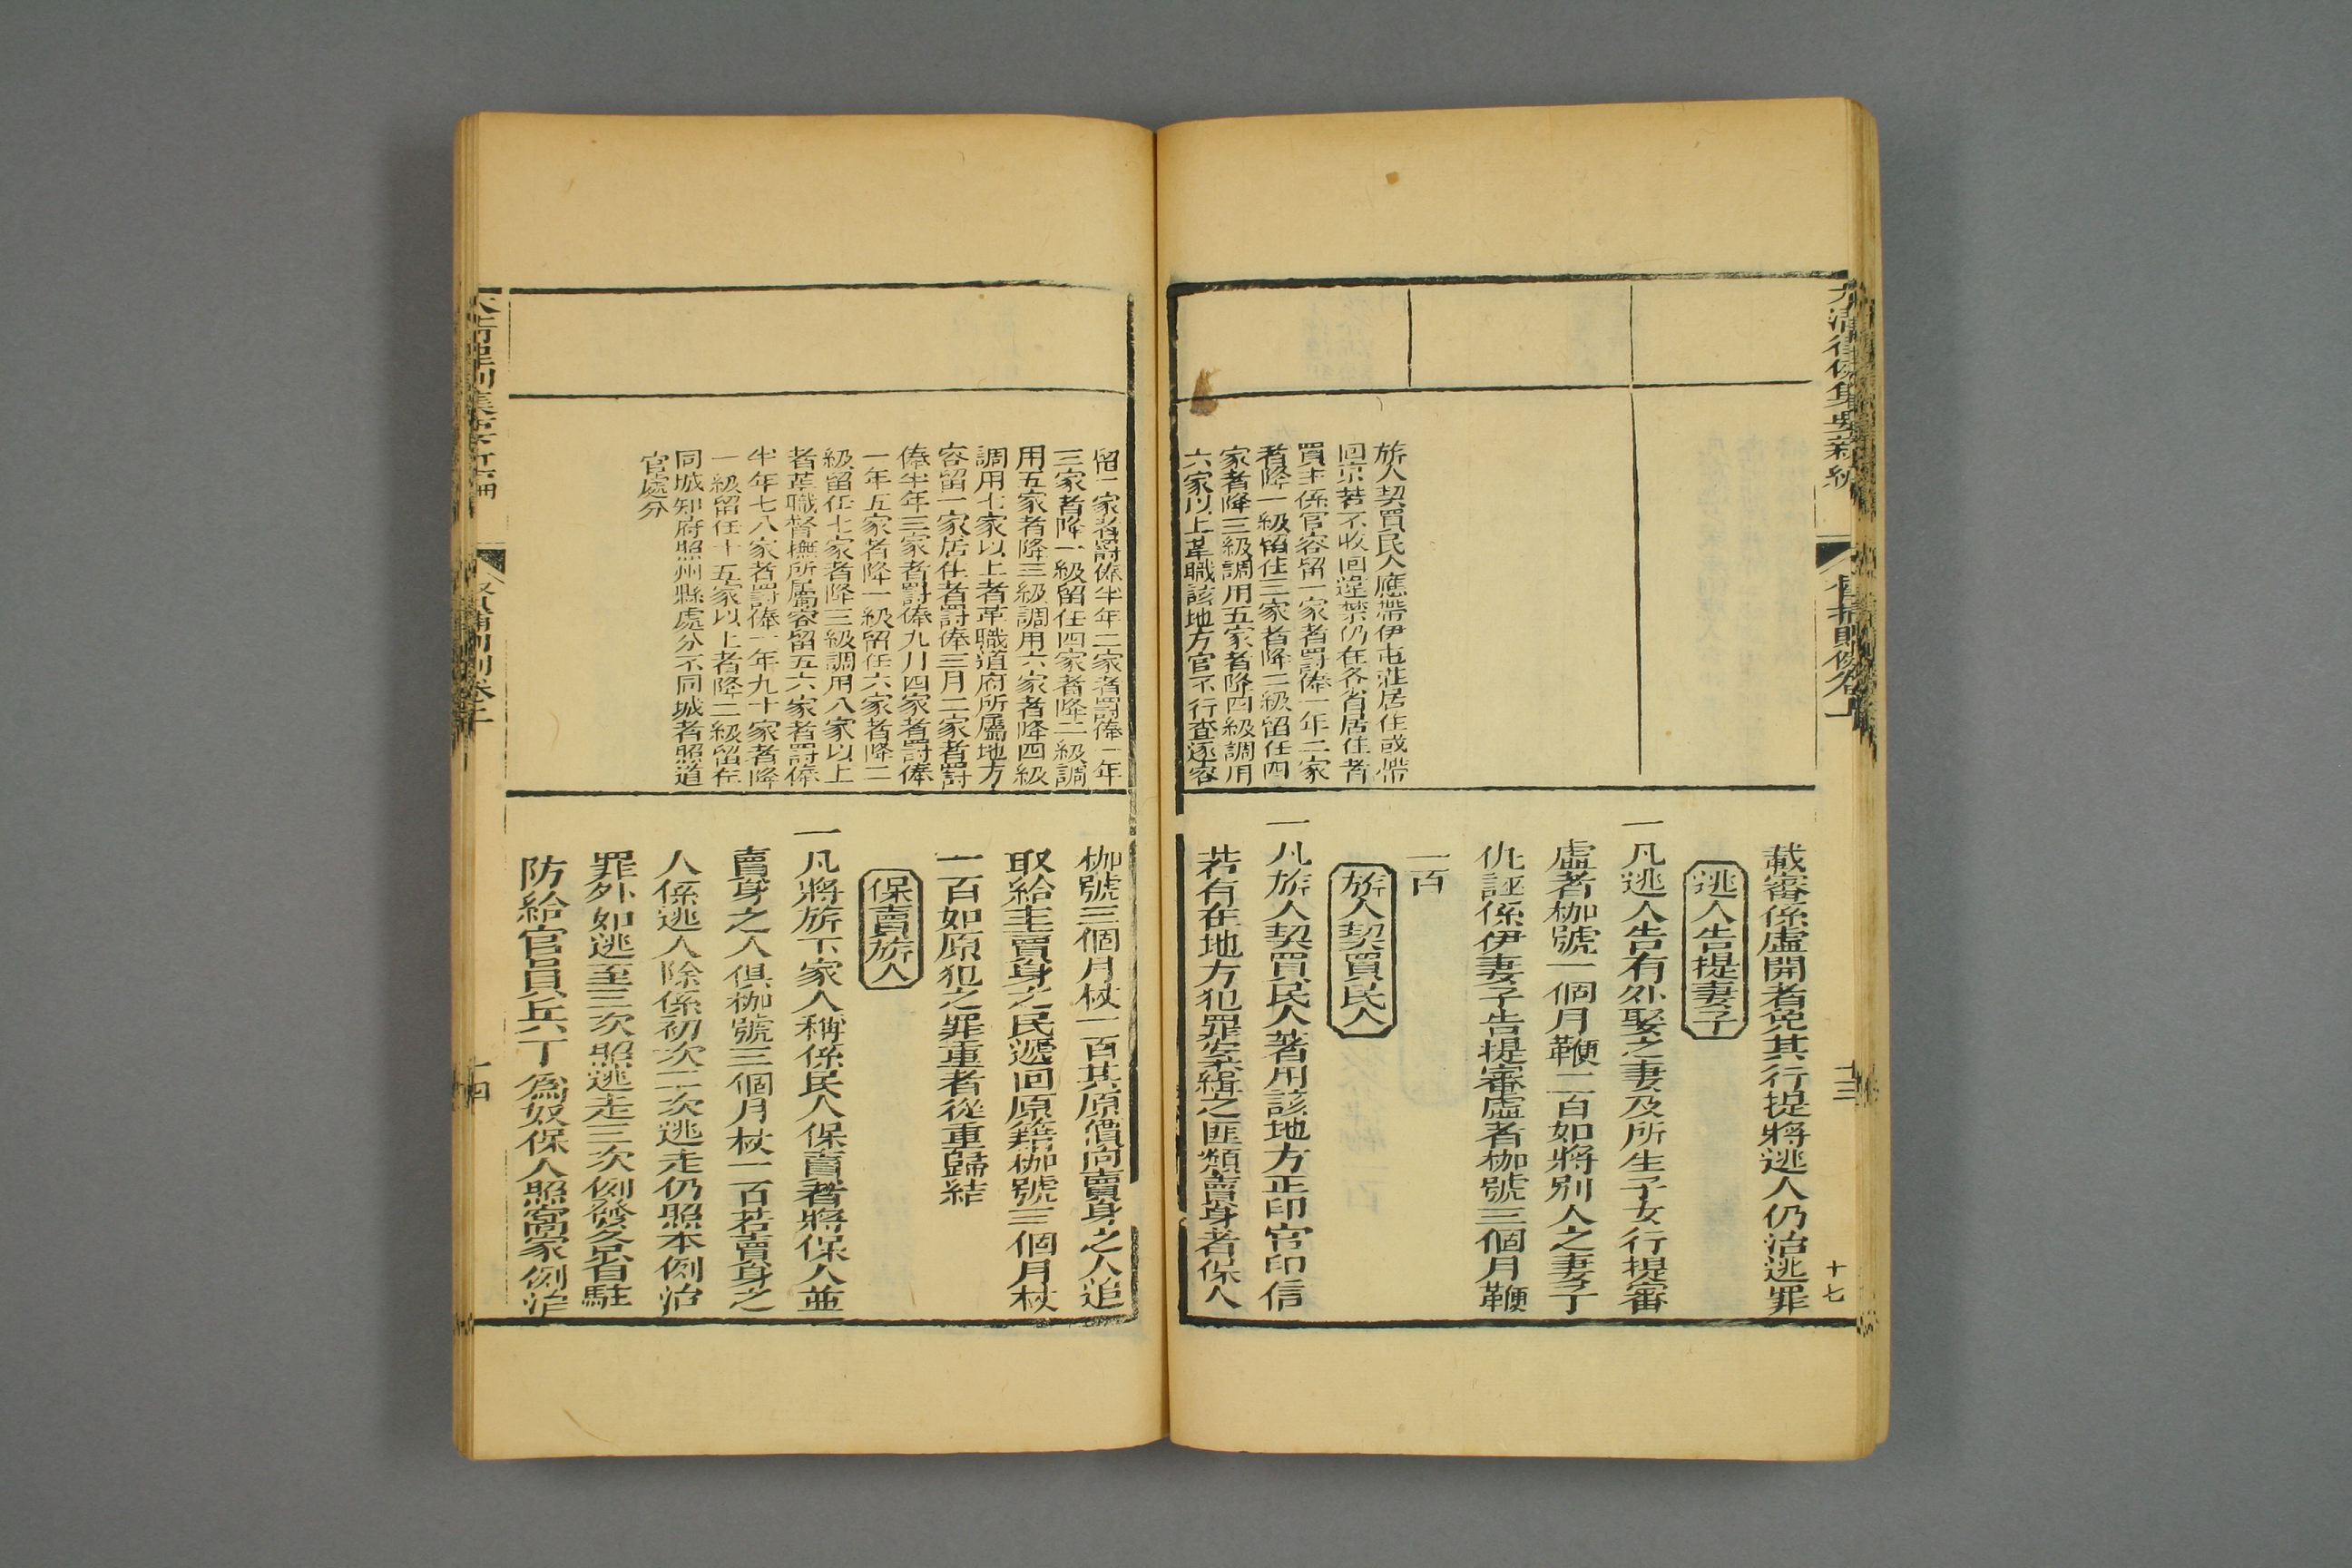 旂人契買民人應帶伊屯莊居住或帶
回京若不收回違禁仍在各省居住者
買主係官容留一家者罰俸一年二家
者降一級留任三家者降二級留任四
家者降三級調用五家者降四級調用
六家以上革職該地方官不行查逐容
載審係虛開者免其行提將逃人仍治逃罪
逃人告提妻子
一凡逃人告有外娶之妻及所生子女行提審
虛者枷號一個月鞭一百如將別人之妻子
仇誣係伊妻子告提審虛者枷號三個月鞭
一百
旂人契買民人
一凡旂人契買民人著用該地方正印官印信
若有在地方犯罪案緝之匪類賣身者保人
十三
十七
留一家者罰俸半年二家者罰俸一年
三家者降一級留任四家者降二級調
用五家者降三級調用六家者降四級
調用七家以上者革職道府所屬地方
容留一家居住者罰俸三月二家者罰
俸半年三家者罰俸九月四家者罰俸
一年五家者降一級留任六家者降二
級留任七家者降三級調用八家以上
者革職督撫所屬容留五六家者罰俸
半年七八家者罰俸一年九十家者降
一級留任十五家以上者降二級留任
同城知府照州縣處分不同城者照道
官處分
枷號三個月杖一百其原價向賣身之人追
取給主賣身之民遞回原籍枷號三個月杖
一百如原犯之罪重者從重歸結
保賣旂人
一凡將旂下家人稱係民人保賣者將保人並
賣身之人俱枷號三個月杖一百若賣身之
人係逃人除係初次二次逃走仍照本例治
罪外如逃至三次照逃走三次例發各省駐
防給官員兵丁爲奴保人照窩家例治
十四